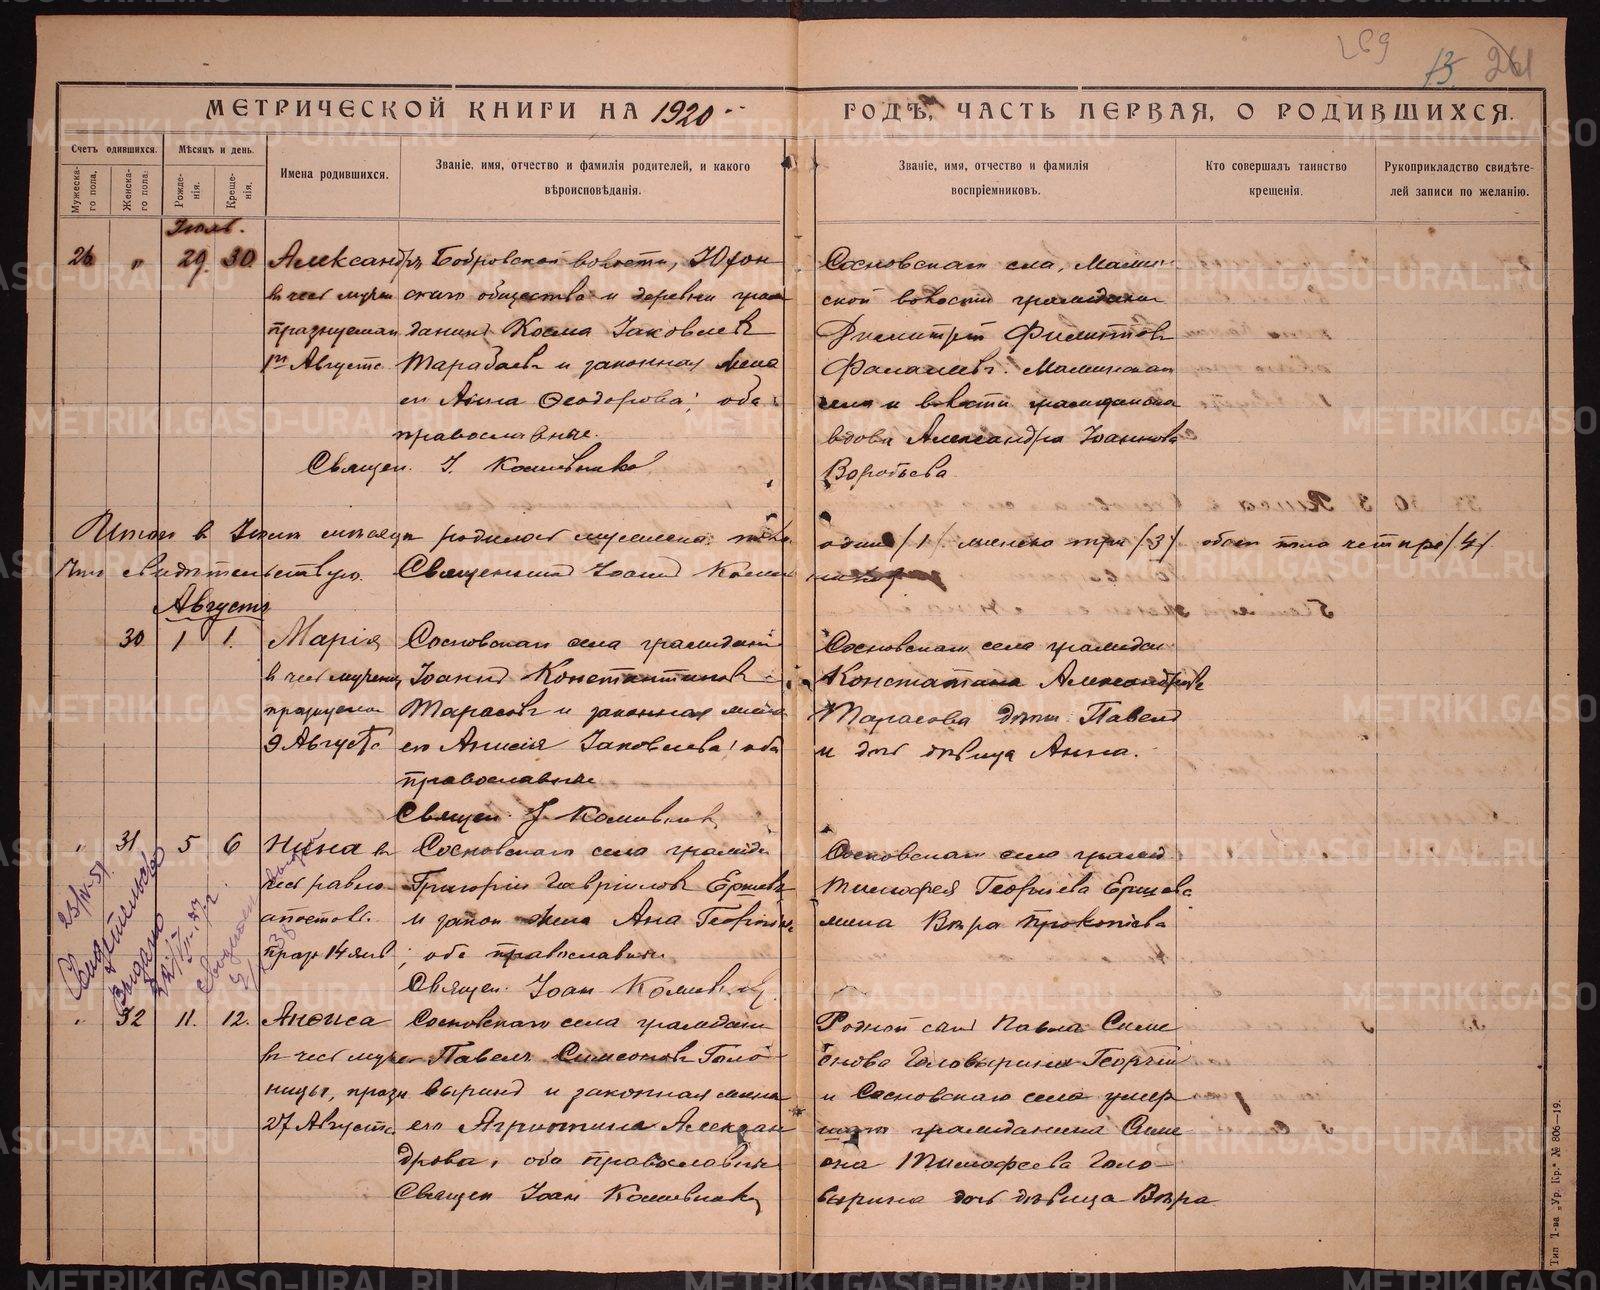 69
13
261
МЕТРИЧЕСКОЙ КНИГИ НА 1920 ГОДЪ, ЧАСТЬ ПЕРВАЯ, О РОДИВШИХСЯ.
Счетъ одившихся.
Мѣсяцъ и день.
Мужеска-го пола,
Женска-го пола.
Рожде-нія.
Креще-нія.
Имена родившихся.
Званіе, имя, отчество и фамилія родителей, и какого
вѣроисповѣданія.
Званіе, имя, отчество и фамилія
воспріемниковъ.
Кто совершалъ таинство
крещенія.
Рукоприкладство свидѣте-
лей записи по желанію.
Іюль.
26 " 29. 30.
Александръ
в чест мучен
празнуемаго
1го Августа
Бобровской волости, Юфон
скаго общества и деревни граж
данинъ Косма Іаковлевъ
Тарабаевъ и законная жена
его Анна Ѳеодорова; оба
православные.
Священ. І.
Сосновскаго села, Мамин
ской волости гражданинъ
Димитрій Филиппов
Маминскаго
села и волости гражданка
вдова Александра Іоаннова
Воробьева
Итого в Іюле месяце родилось мужеска пола один /1/ женска три /3/ обоего пола четыре /4/
Что свидетельствую. Священникъ Іоаннъ
Августъ
30 1 1.
Марія
в чест мучениц
празнуемая
9 Августа
Сосновскаго села гражданинъ
Іоаннъ Константиновъ
Тарасовъ и законная жена
его Анисія Іаковлева; оба
православные
Священ. І.
Сосновскаго села граждан
Константина Александрова
Тарасова дети: Павелъ
и дочь дѣвица Анна.
" 31 5 6
Нина в
чест равно
апостол.
празн 14 янв
Сосновскаго села гражд
Григорій Гавріиловъ
и закон жена Ана Георгіева
; оба православные
Священ. Іоан
Сосновскаго села гражд
Тимофея Георгіева
жена Вѣра Прокопіева
Свидетельство
выдано
" 32 11. 12.
Анѳиса
в чест муче
ницы, празн
27 Августа
Сосновскаго села гражданинъ
Павелъ Симеоновъ Голо
выринъ и законная жена
его Агрипина Алексан
дрова, оба православные
Священ Іоан
Родной сынъ Павла Симе
онова Головырина Георгій
и Сосновскаго села умер
шаго гражданина Симе
она Тимофеева Голо
вырина дочь дѣвица Вѣра
Тип Т-ва „Ур. Кр.“ № 806—19.
METRIKI.GASO-URAL.RU